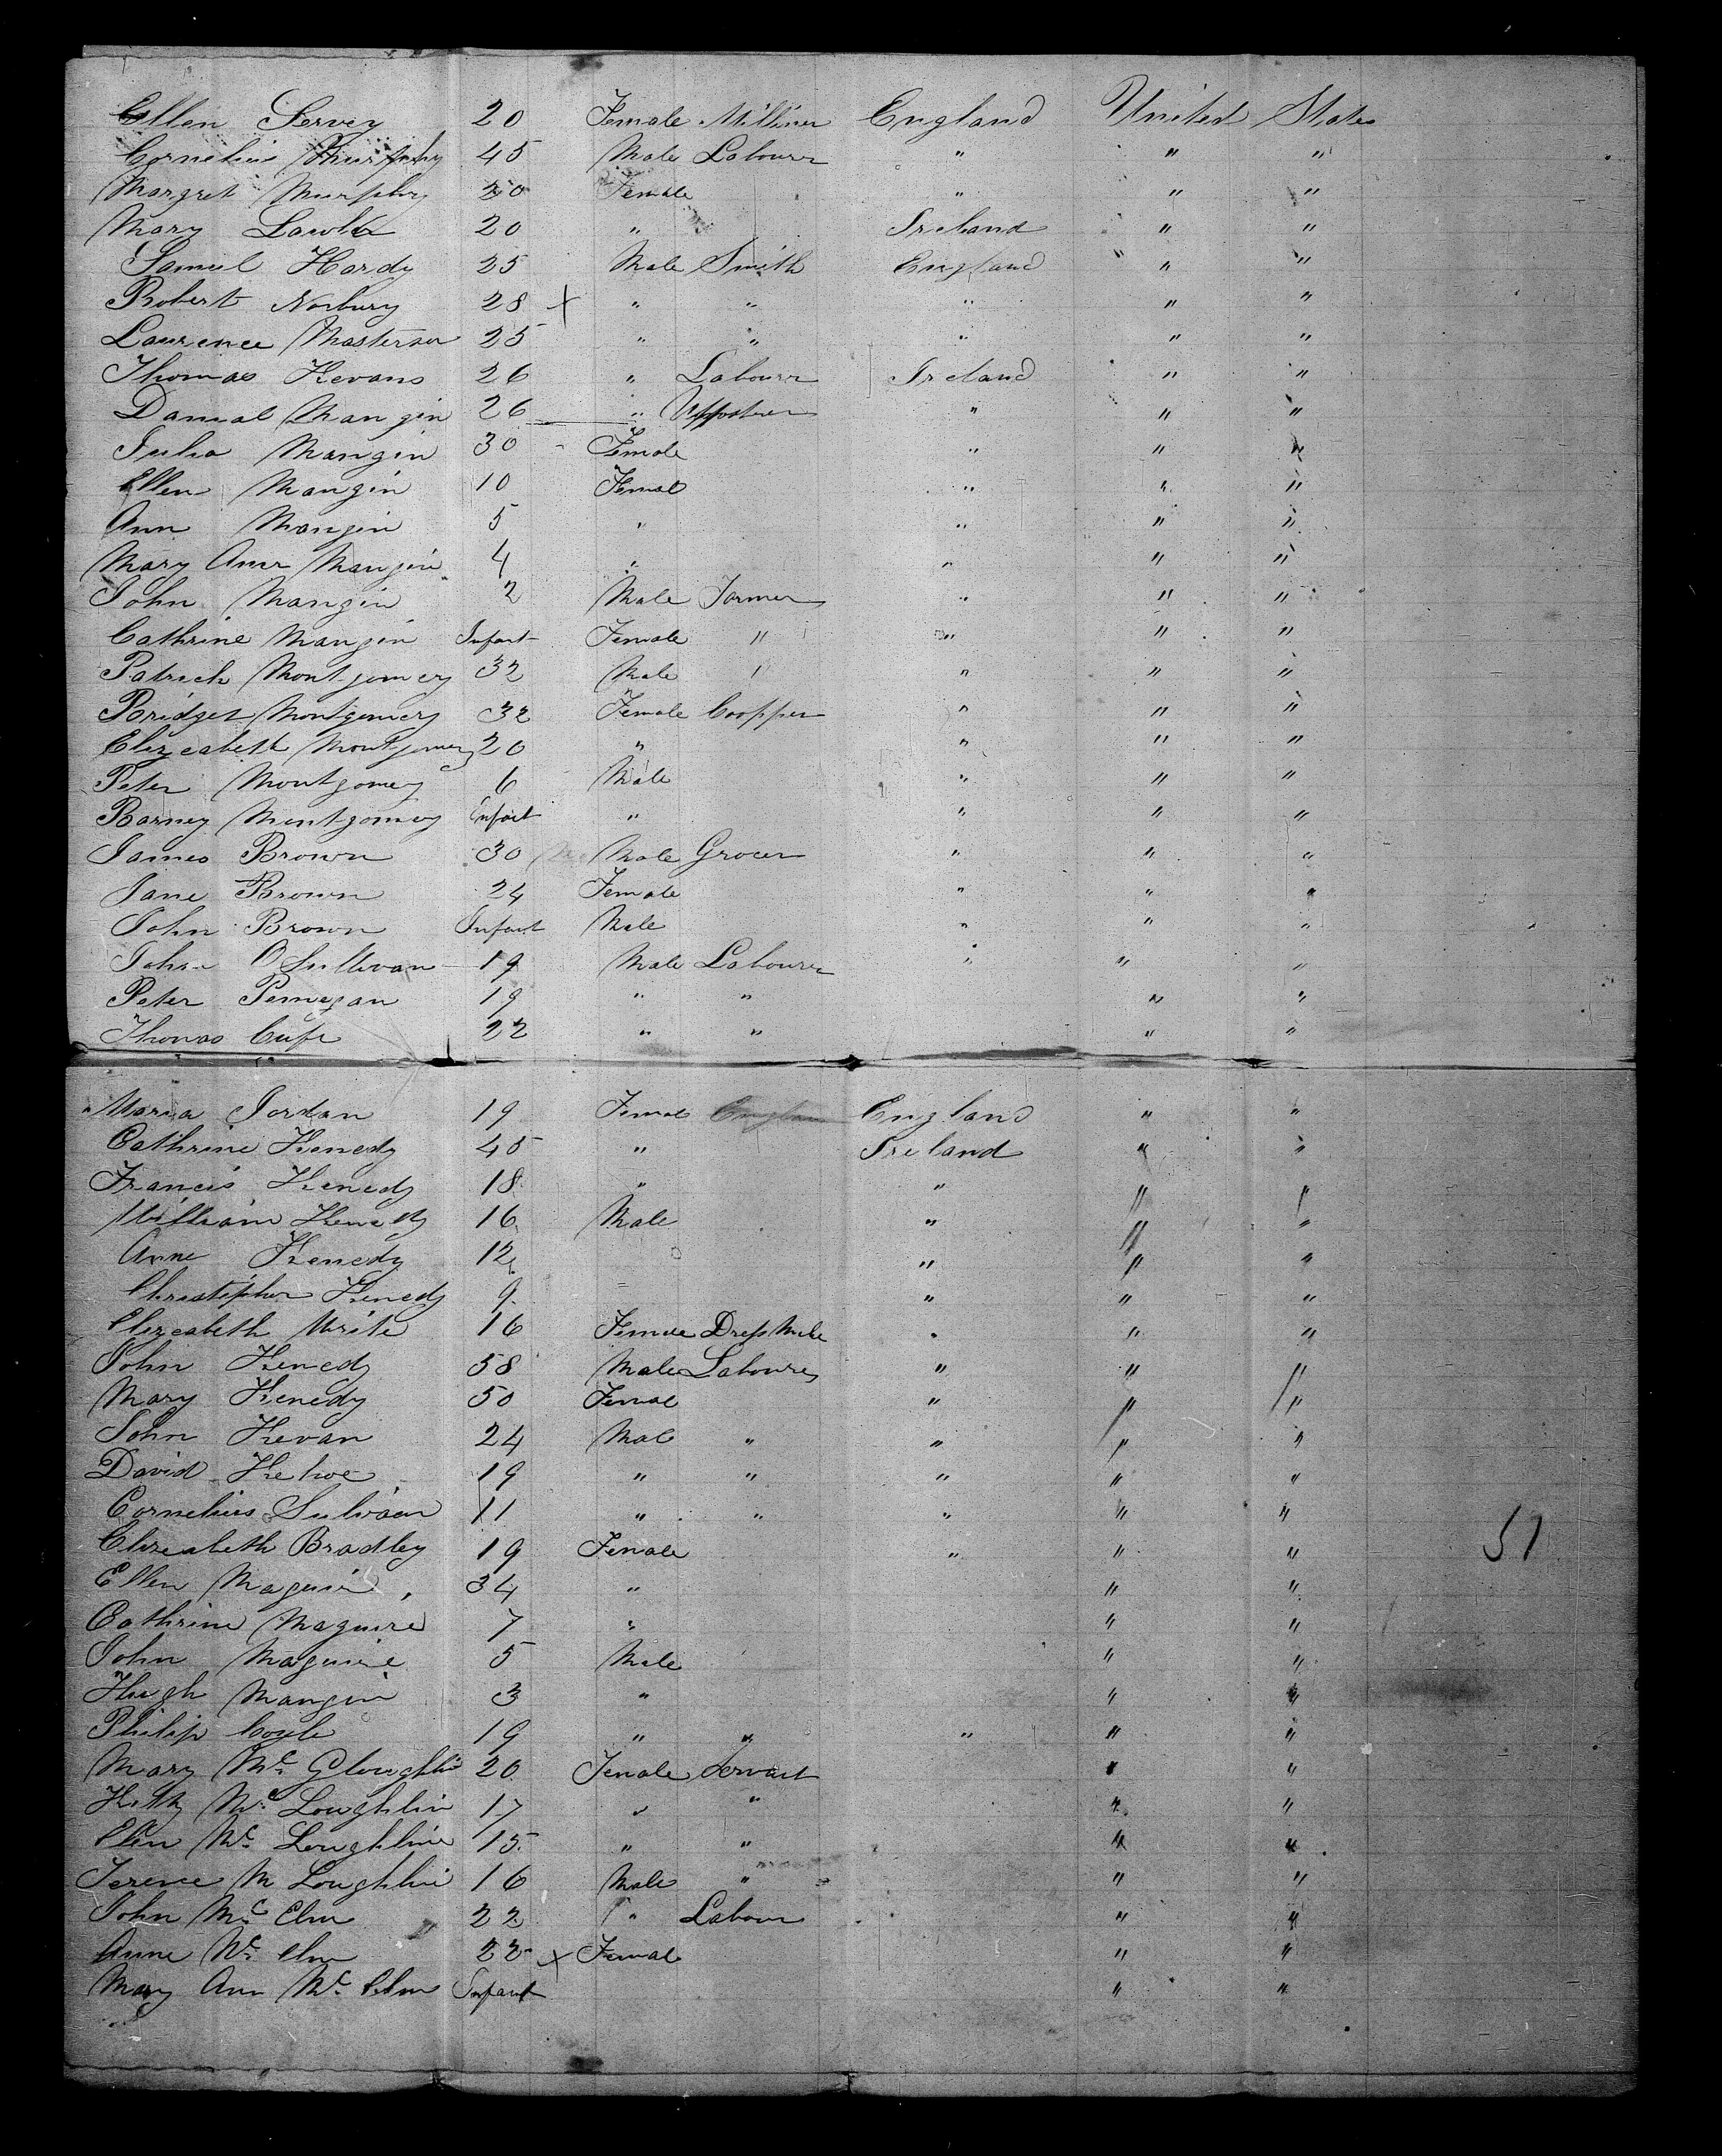 Ellen Servey 20 Female Milliner England United States
Cornelius Murphy 45 Male Labourer " " "
Margret Murphy 20 Female " " "
Mary Lawler 20 " Ireland " "
Samuel Hardy 25 Male Smith England " "
Robert Norbury 28 x " " " " "
Laurence Masterson 25 " " " " "
Thomas Kevans 26 " Labourer Ireland " "
Danial Mangin 26 " " " "
Julia Mangin 30 Female " " "
Ellen Mangin 10 Femal " " "
Ann Mangin 5 " " " "
Mary Ann Mangin 4 " " " "
John Mangin 2 Male Farmer " " "
Cathrine Mangin Infant Female " " " "
Patrick Montgomery 32 Male " " " "
Bridget Montgomery 32 Female Coopper " " "
Elizeabeth Montgomery 20 " " " "
Peter Montgomery 6 Male " " "
Barney Montgomery Infant " " " "
James Brown 30 Male Grocer " " "
Jane Brown 24 Female " " "
John Brown Infant Male " " "
John O Sullivan 19 Male Labourer " " "
Peter 19 " " " "
Thomas 22 " " " "
Maria Jordan 19 Femal England " "
Cathrine Kenedy 45 " Ireland " "
Francis Kenedy 18 " " " "
William Kenedy 16 Male " " "
Anne Kenedy 12 " " "
Christopher Kenedy 9 " " "
Elizeabeth Write 16 Female Dress Make " " "
John Kenedy 58 Male Labourer " " "
Mary Kenedy 50 Femal " " "
John Kevan 24 Male " " " "
David Kehoe 19 " " " " "
Cornelius Sulivan 11 " " " " "
Elizeabeth Bradley 19 Female " " "
Ellen Maguire 34 " " "
Cathrine Maguire 7 " " "
John Maguire 5 Male " "
Hugh Mangin 3 " " "
Philip 19 " " " " "
Mary Mc Gloughlin 20 Female Servant " "
Kitty Mc Loughlin 17 " " " "
Elen Mc Loughlin 15 " " " "
Terence M Loughlin 16 Male " " "
John Mc Elm 22 " Labour " "
Anne Mc Elm 22 x Femal " "
Mary Ann Mc Elm Infant " "
51